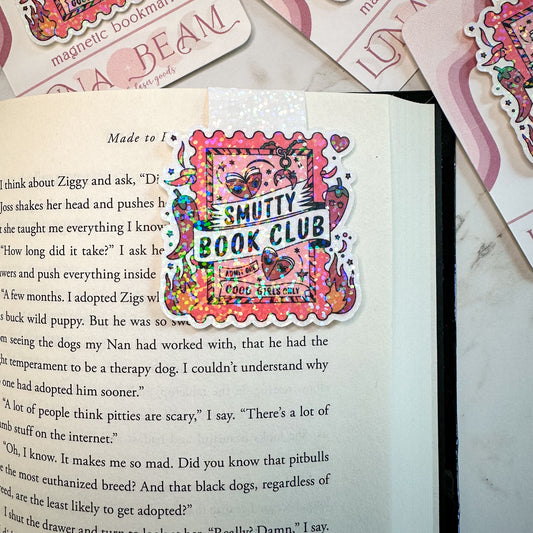 magnetic bookmark
LUNA BEAM
laser goods
magnetic
LUNA
Made to
SMUTTY
BOOK CLUB
ADMIT ONE
GOOD GIRLS ONLY
I think about Ziggy and ask,
Joss shakes her head and pushes
she taught me everything I know
"How long did it take?" I ask
and push everything inside
"A few months. I adopted Zigs
buck wild puppy. But he was so
seeing the dogs my Nan had worked with, that he had the
temperament to be a therapy dog. I couldn't understand why
one had adopted him sooner."
"A lot of people think pitties are scary," I say. "There's a lot of
stuff on the internet."
"Oh, I know. It makes me so mad. Did you know that pitbulls
the most euthanized breed? And that black dogs, regardless of
are the least likely to get adopted?"
I shut the drawer and turn to look at her. "Really? Damn," I say.